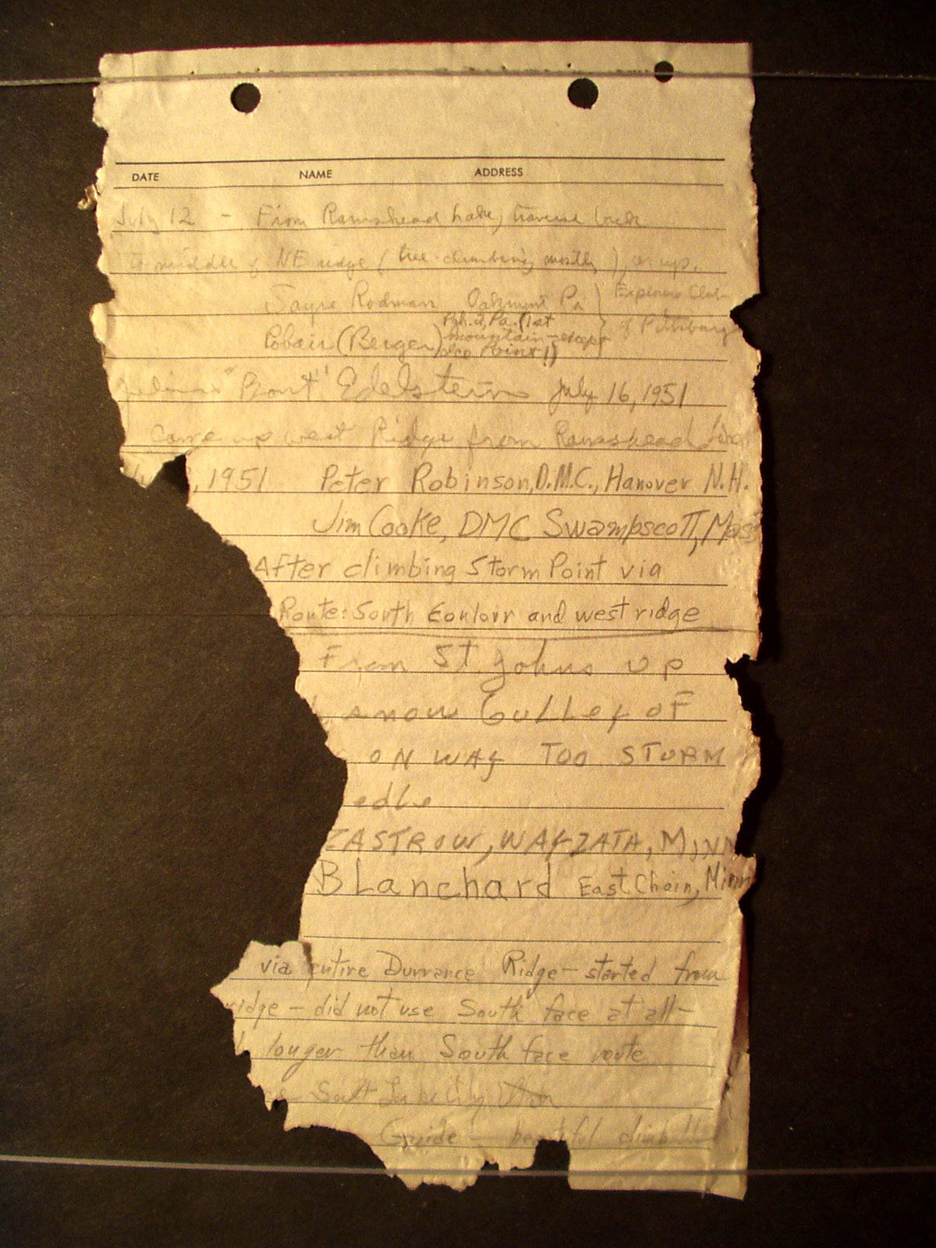 DATE NAME ADDRESS
July 12 - From Ramshead Lake, traverse
to middle of NE ridge (tree-climbing mostly), up.
Sayre Rodman Oakmont Pa } Explorers Club
(Berger) Pgh. 2, Pa. (1st of Pittsburg
mountain - except
Point!)
"Bart" Edelstein July 16, 1951
came up west Ridge from Ramshead
, 1951 Peter Robinson, D.M.C., Hanover N.H.
Jim Cooke, DMC Swampscott, Mass
After climbing Storm Point via
Route: South Couloir and west ridge
From St Johns up
snow Gulley of
ON WAY TOO STORM
edle
ZASTROW, WAYZATA, MINN
Blanchard East Chain, Minn
via entire Durrance Ridge - started from
ridge - did not use South face at all -
longer than South face route
Salt Lake City Utah
Guide - beautiful climb!!!